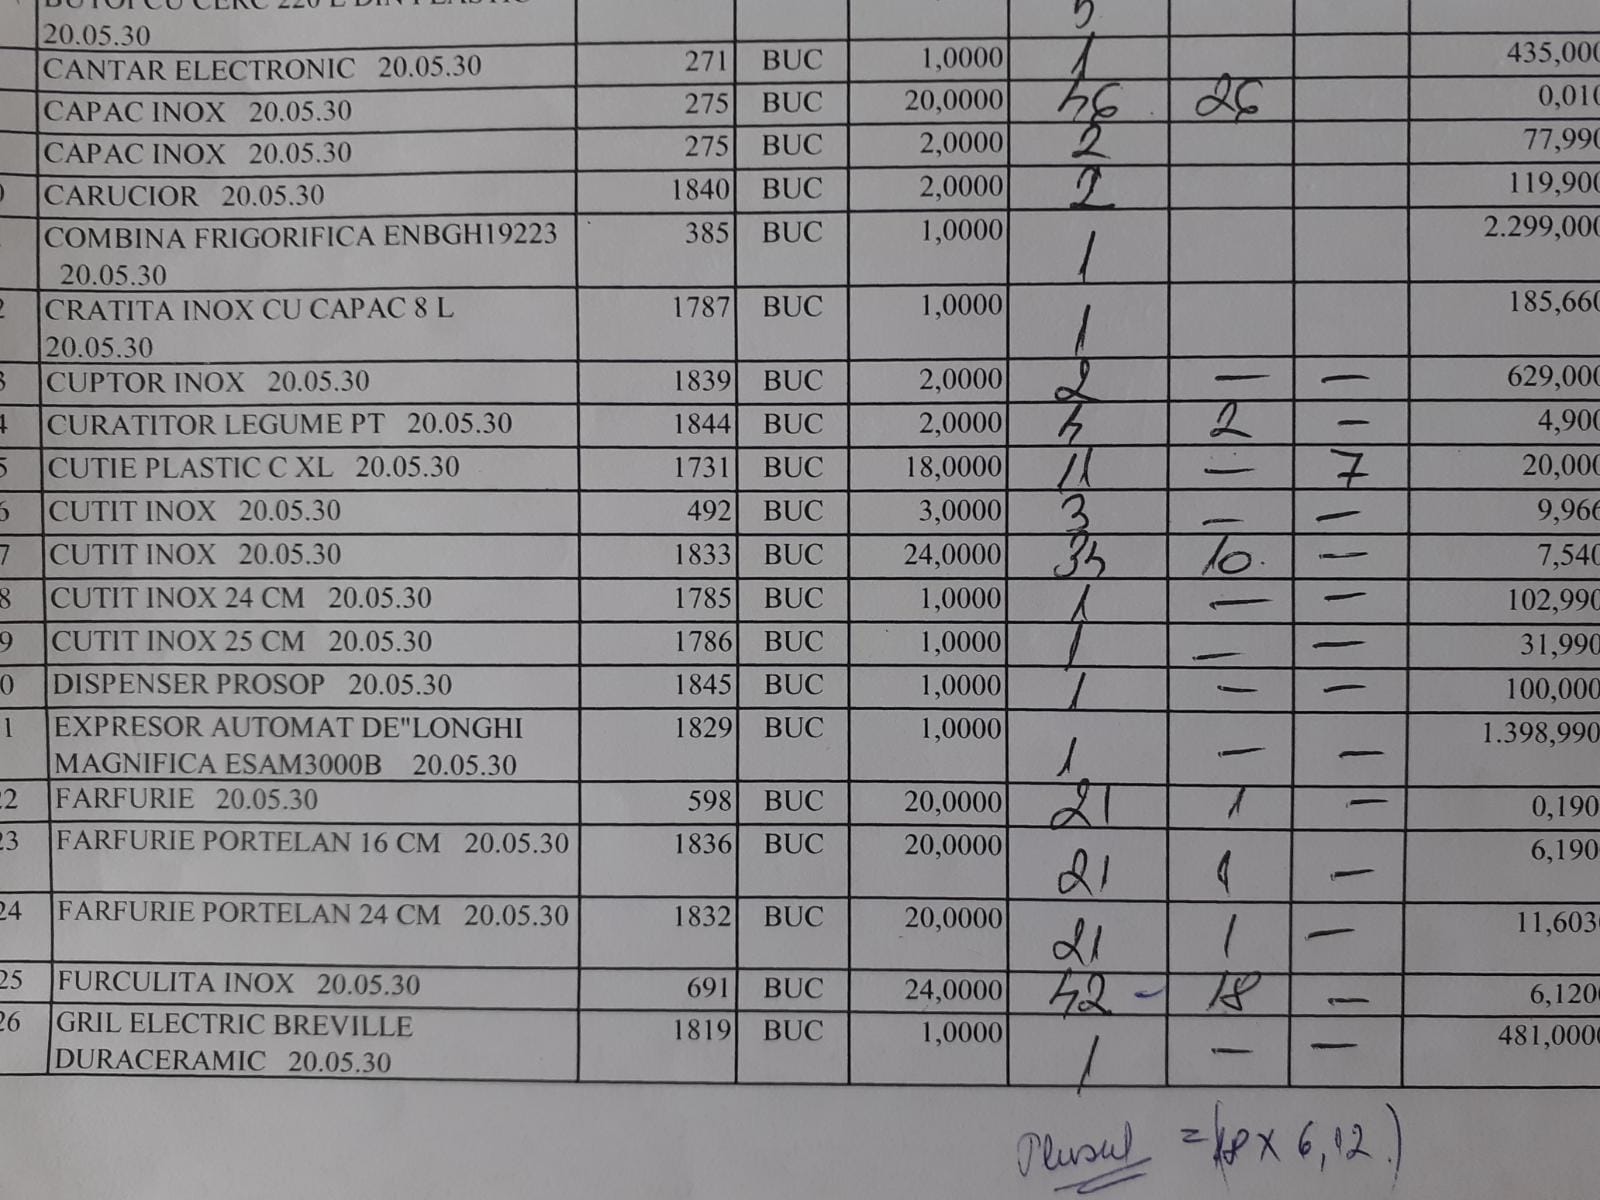 BUTOI CU CERC 220 L DIN PLASTIC
20.05.30 5
CANTAR ELECTRONIC 20.05.30 271 BUC 1,0000 1 435,000
CAPAC INOX 20.05.30 275 BUC 20,0000 46 26 0,010
CAPAC INOX 20.05.30 275 BUC 2,0000 2 77,990
0 CARUCIOR 20.05.30 1840 BUC 2,0000 2 119,900
COMBINA FRIGORIFICA ENBGH19223 385 BUC 1,0000 1 2.299,000
20.05.30
2 CRATITA INOX CU CAPAC 8 L 1787 BUC 1,0000 1 185,660
20.05.30
3 CUPTOR INOX 20.05.30 1839 BUC 2,0000 2 — — 629,000
4 CURATITOR LEGUME PT 20.05.30 1844 BUC 2,0000 4 2 — 4,900
5 CUTIE PLASTIC C XL 20.05.30 1731 BUC 18,0000 11 — 7 20,000
6 CUTIT INOX 20.05.30 492 BUC 3,0000 3 — — 9,966
7 CUTIT INOX 20.05.30 1833 BUC 24,0000 34 10 — 7,540
8 CUTIT INOX 24 CM 20.05.30 1785 BUC 1,0000 1 — — 102,990
9 CUTIT INOX 25 CM 20.05.30 1786 BUC 1,0000 1 — — 31,990
0 DISPENSER PROSOP 20.05.30 1845 BUC 1,0000 1 — — 100,000
1 EXPRESOR AUTOMAT DE"LONGHI 1829 BUC 1,0000 1 — — 1.398,990
MAGNIFICA ESAM3000B 20.05.30
22 FARFURIE 20.05.30 598 BUC 20,0000 21 1 — 0,190
23 FARFURIE PORTELAN 16 CM 20.05.30 1836 BUC 20,0000 21 1 — 6,190
24 FARFURIE PORTELAN 24 CM 20.05.30 1832 BUC 20,0000 21 1 — 11,603
25 FURCULITA INOX 20.05.30 691 BUC 24,0000 42 - 18 — 6,120
26 GRIL ELECTRIC BREVILLE 1819 BUC 1,0000 1 — — 481,0000
DURACERAMIC 20.05.30
Plusul = (18 x 6,12)